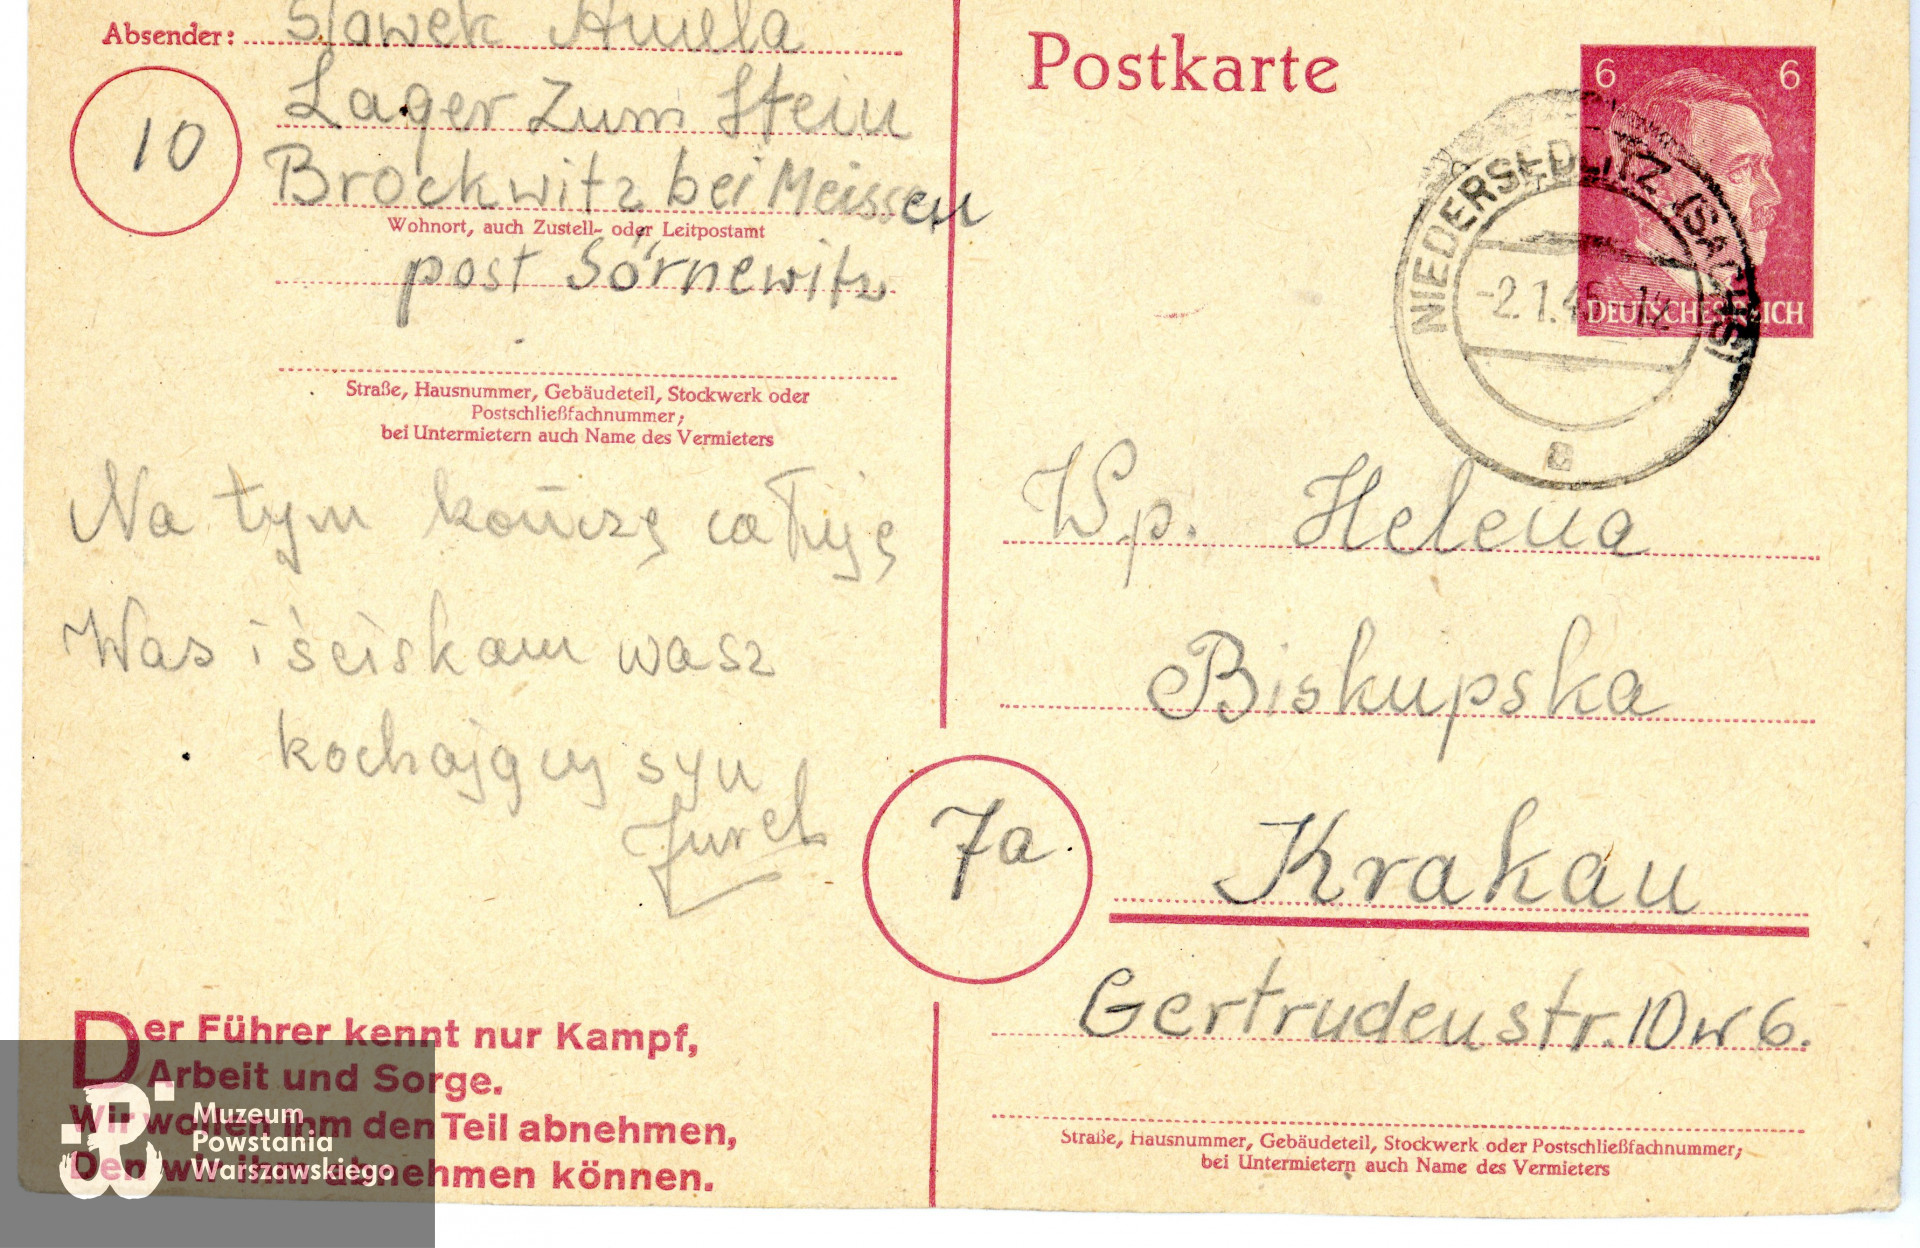 Absender: Sławek Amela
Lager zum Stein
10
Brockwitz bei Meissen
Wohnort, auch Zustell- oder Leitpostamt
post Sörnewitz
Straße, Hausnummer, Gebäudeteil, Stockwerk oder
Postschließfachnummer;
bei Untermietern auch Name des Vermieters
Na tym kończę całuję
Was i ściskam wasz
kochający syn
Jurek
Der Führer kennt nur Kampf,
Arbeit und Sorge.
Wir wollen ihm den Teil abnehmen,
Den wir ihm abnehmen können.
Muzeum
Powstania
Warszawskiego
Postkarte
6 6
DEUTSCHES REICH
NIEDERSEDLITZ (SACHS)
-2.1.45-12
a
Wp. Helena
Biskupska
7a
Krakau
Gertrudenstr. 10 w 6.
Straße, Hausnummer, Gebäudeteil, Stockwerk oder Postschließfachnummer;
bei Untermietern auch Name des Vermieters